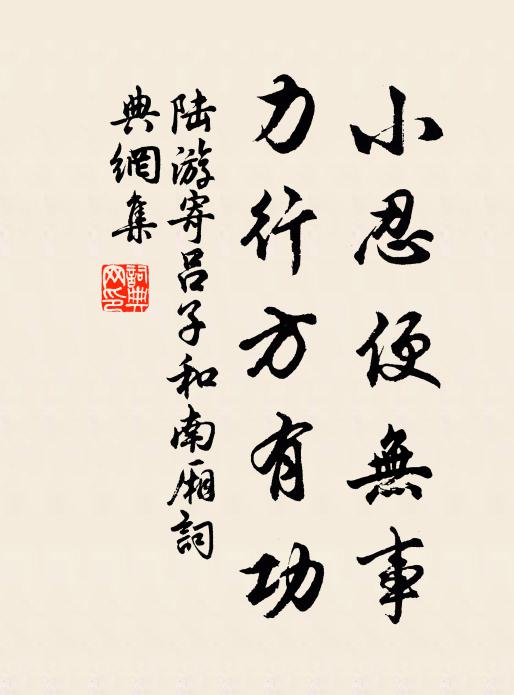 小忍便無事
力行方有功
陆游寄吕子和南厢詞
典網集
詞典
网印